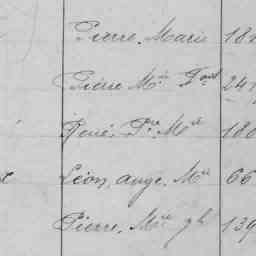 Pierre. Marie 18
Pierre Mie 24
René. Pre Mie 180
Léon, ange, Mie 66
Pierre, Mie 139